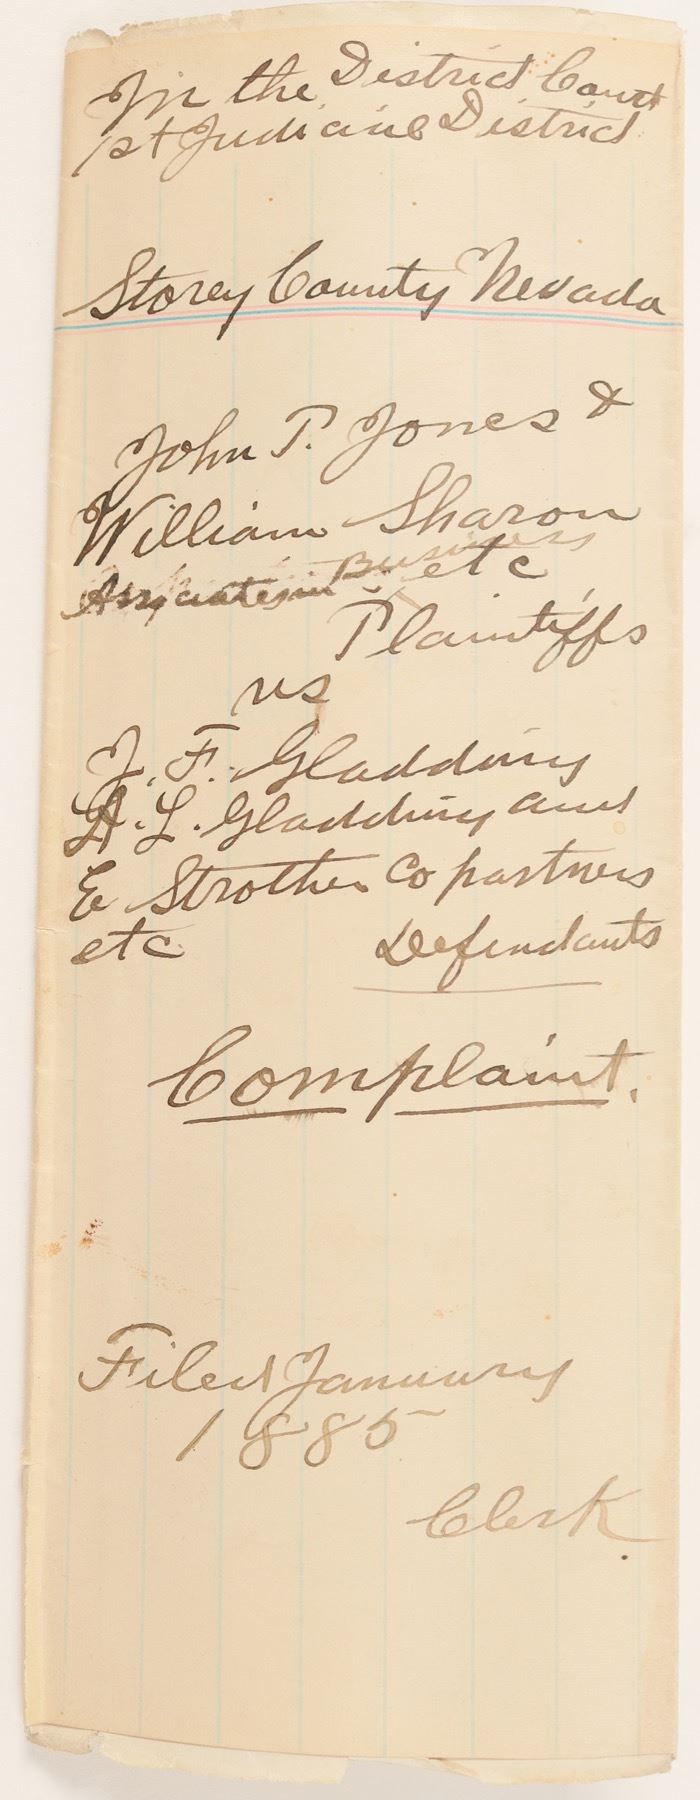 In the District Court
1st Judicial District
Storey County Nevada
John P. Jones &
William Sharon
Associates in Business etc
Plaintiffs
vs
J. F. Gladding
A. L. Gladding and
E Strother Co partners
etc Defendants
Complaint.
Filed January
1885
Clerk